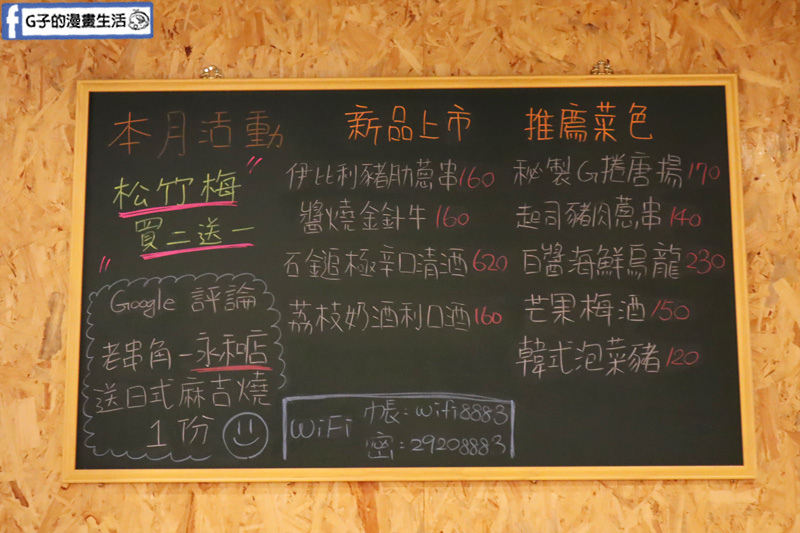 G子的漫畫生活
本月活動
"松竹梅
買二送一"
Google 評論
老串角-永和店
送日式麻吉燒
1份
新品上市
伊比利豬肋蔥串 160
醬燒金針牛 160
石鎚極辛口清酒 620
荔枝奶酒利口酒 160
WiFi 帳:wifi8883
密:29208883
推薦菜色
秘製G捲唐揚 170
起司豬肉蔥串 140
白醬海鮮烏龍 230
芒果梅酒 150
韓式泡菜豬 120